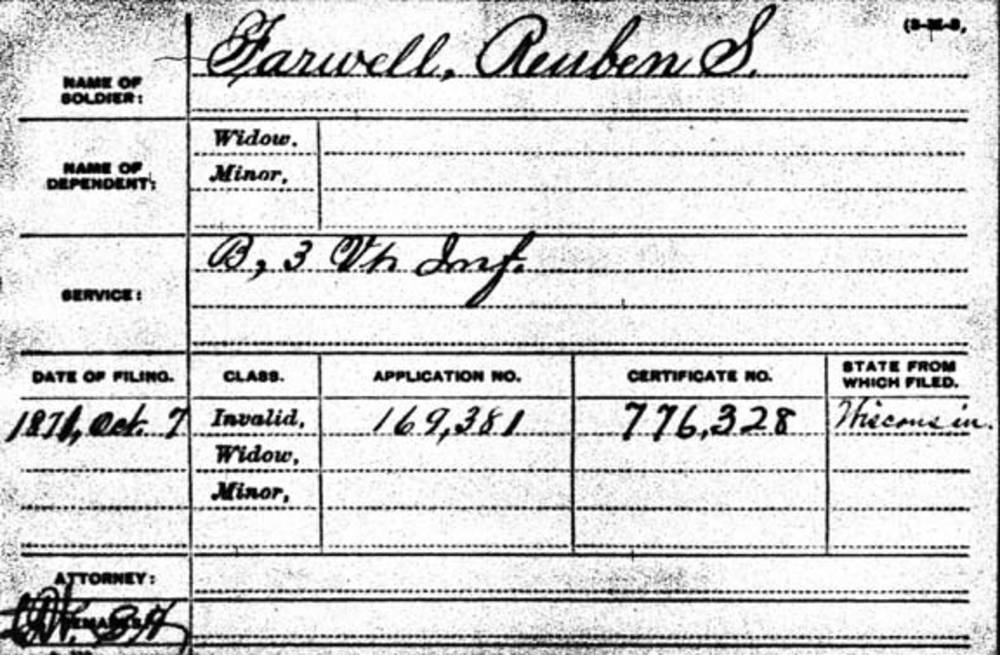 NAME OF SOLDIER: Farwell, Reuben S.
NAME OF DEPENDENT: Widow,
Minor,
SERVICE: B, 3 Vt Inf.
DATE OF FILING. CLASS. APPLICATION NO. CERTIFICATE NO. STATE FROM WHICH FILED.
1871, Oct. 7 Invalid, 169,381 776,328 Wisconsin.
Widow,
Minor,
ATTORNEY:
REMARKS: